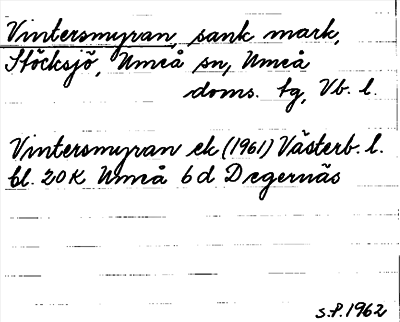 Vintersmyran, sank mark,
Stöcksjö, Umeå sn, Umeå
doms. tg, Vb. l.
Vintersmyran ek (1961) Västerb. l.
bl. 20 K Umeå 6 d Degernäs
S.P. 1962